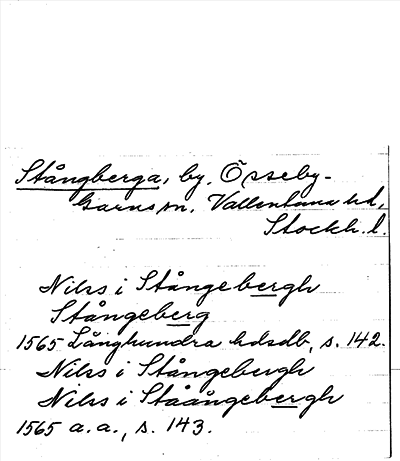 Stångberga, by, Össeby-
Garns sn, Vallentuna hd,
Stockh. l.
Nilss i Stångebergh
Stångeberg
1565 Långhundra hdsdb, s. 142.
Nilss i Stångebergh
Nilss i Ståångebergh
1565 a.a., s. 143.